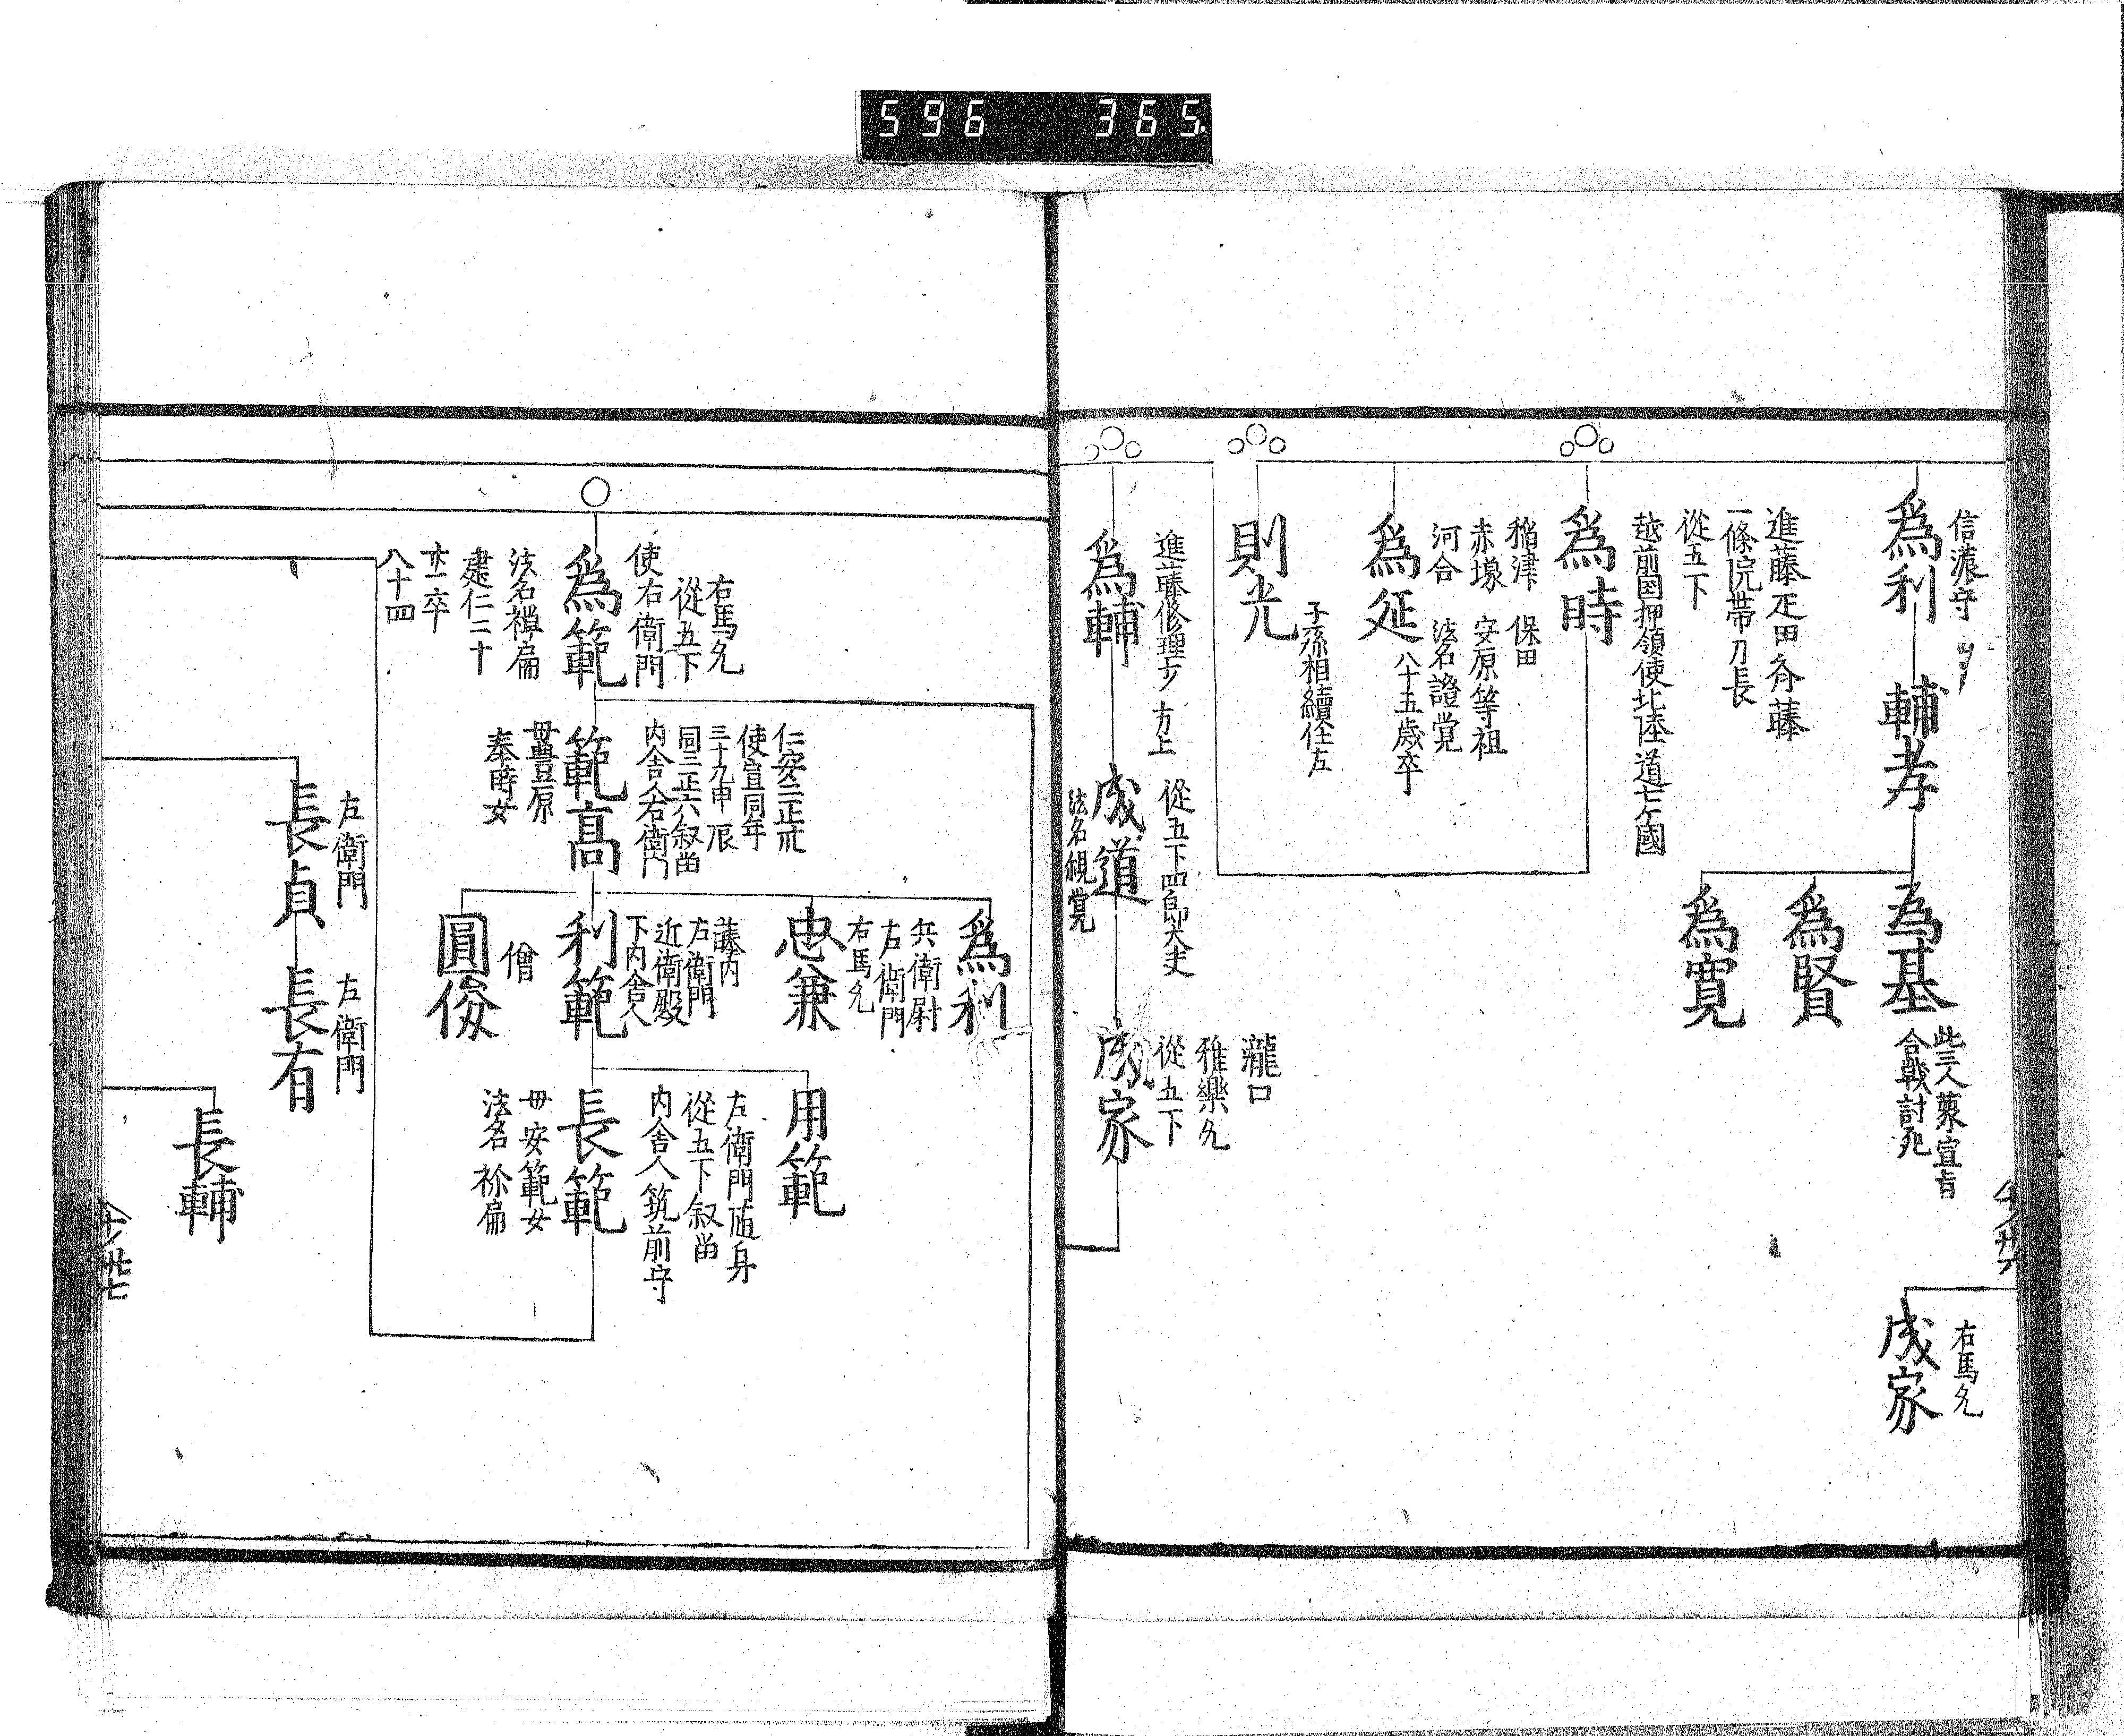 596 365
信濃守
爲利
輔孝
爲基
此三人
合戰討死
爲賢
爲寛
右馬允
成家
進藤疋田斎藤
一條院帶刀長
從五下
越前國押領使北陸道七ケ國
爲時
稲津 保田
赤塚 安原等祖
河合 法名證覚
爲延
八十五歳卒
則光
子孫相續在左
進藤修理少 方上
爲輔
從五下四郎大夫
成道
法名観覚
瀧口
雅樂允
從五下
成家
右馬允
從五下
使右衛門
爲範
法名禅扁
建仁二十
廿一卒
八十四
仁安二正卅
使宣同年
三十九申辰
同三正六叙留
内舎人右衛門
範高
毋豊原
奉時女
爲利
兵衛尉
左衛門
右馬允
忠兼
藤内
左衛門
近衛殿
下内舎人
利範
僧
圓俊
用範
左衛門随身
從五下叙留
内舎人筑前守
長範
毋安範女
法名 祢扁
左衛門
長貞
左衛門
長有
長輔